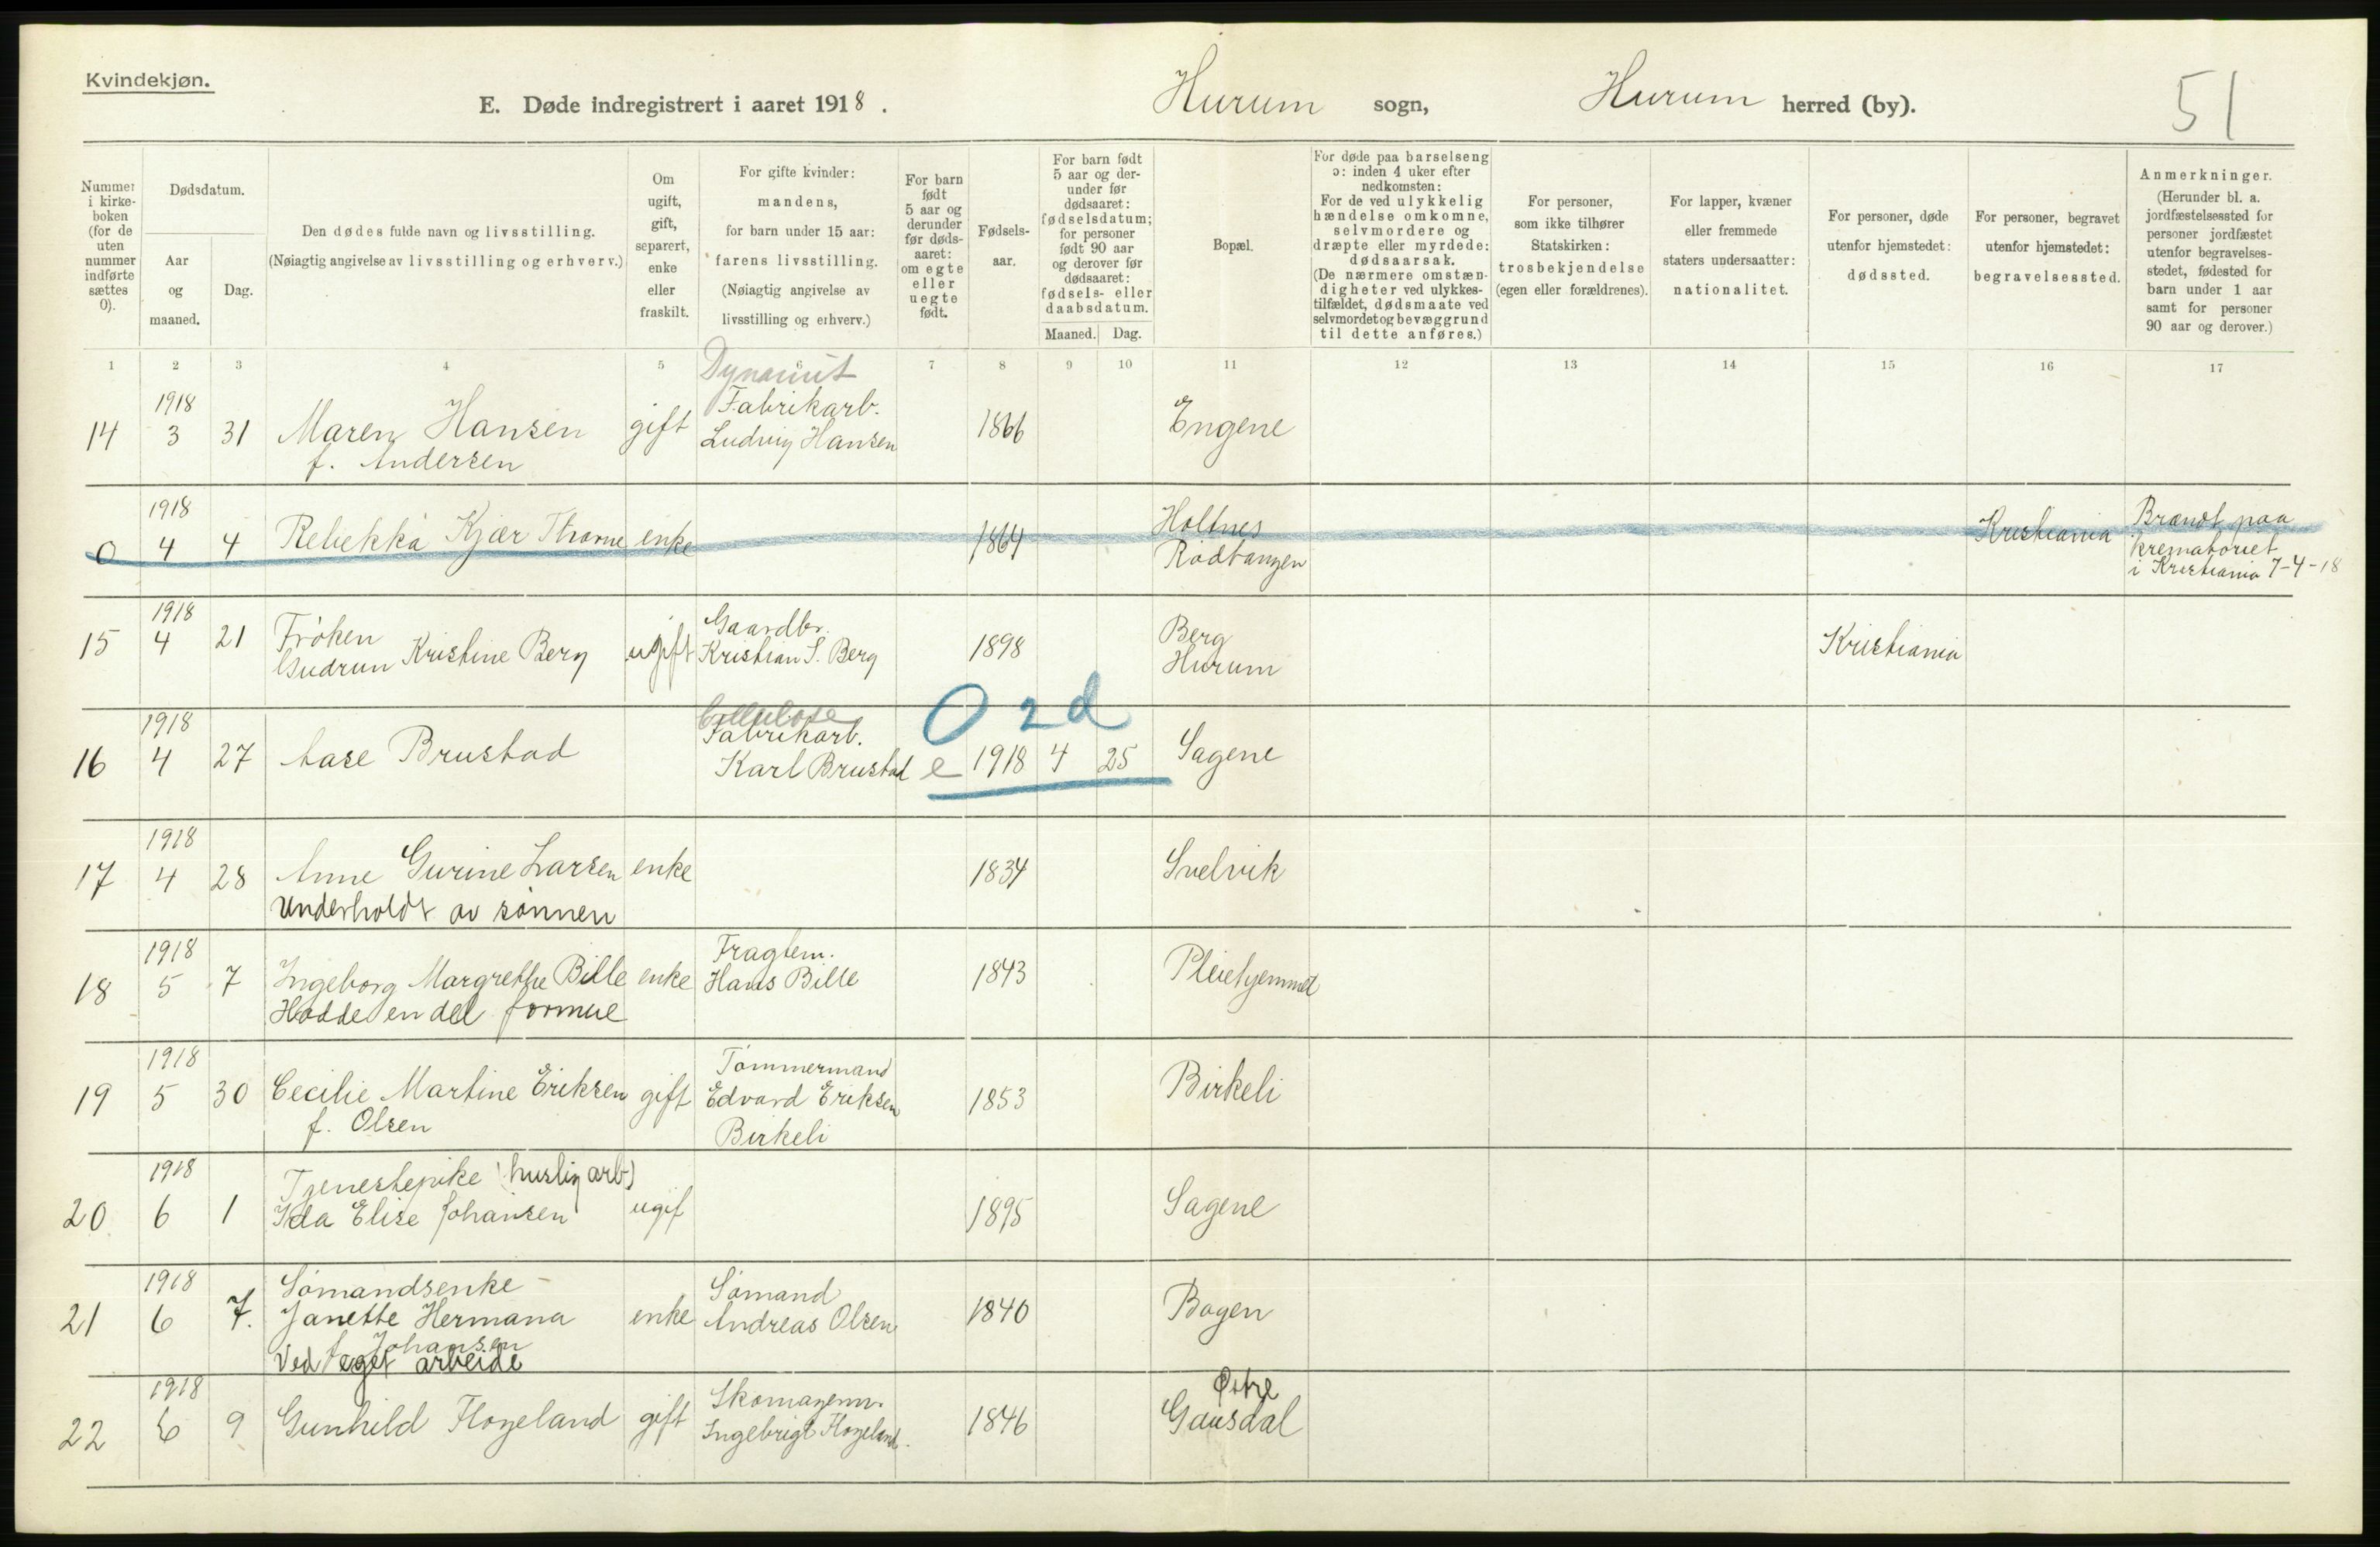 Kvindekjøn.
E. Døde indregistrert i aaret 1918.
Hurum sogn,
Hurum herred (by).
51
Nummer i kirke-boken (for de uten nummer indførte sættes 0).
Dødsdatum.
Aar og maaned.
Dag.
Den dødes fulde navn og livsstilling.
(Nøiagtig angivelse av livsstilling og erhverv.)
Om ugift, gift, separert, enke eller fraskilt.
For gifte kvinder: mandens, for barn under 15 aar: farens livsstilling.
(Nøiagtig angivelse av livsstilling og erhverv.)
For barn født 5 aar og derunder før døds-aaret: om egte eller uegte født.
Fødsels-aar.
For barn født 5 aar og der-under før dødsaaret: fødselsdatum; for personer født 90 aar og derover før dødsaaret: fødsels- eller daabsdatum.
Maaned. Dag.
Bopæl.
For døde paa barselseng ɔ: inden 4 uker efter nedkomsten:
For de ved ulykkelig hændelse omkomne, selvmordere og dræpte eller myrdede: dødsaarsak.
(De nærmere omstæn-digheter ved ulykkes-tilfældet, dødsmaate ved selvmordet og bevæggrund til dette anføres.)
For personer, som ikke tilhører Statskirken: trosbekjendelse (egen eller forældrenes).
For lapper, kvæner eller fremmede staters undersaatter: nationalitet.
For personer, døde utenfor hjemstedet: dødssted.
For personer, begravet utenfor hjemstedet: begravelsessted.
Anmerkninger.
(Herunder bl. a. jordfæstelsessted for personer jordfæstet utenfor begravelses-stedet, fødested for barn under 1 aar samt for personer 90 aar og derover.)
1 2 3 4 5 6 7 8 9 10 11 12 13 14 15 16 17
Dynamit
1918 Fabrikarb.
14 3 31 Maren Hansen gift Ludvig Hansen 1866 Engene
f. Andersen
1918 Holtnes Brændt paa
0 4 4 Rebekka Kjær Thorne enke 1864 Rødtangen Kristiania krematoriet
i Kristiania 7-4-18
1918 Frøken Gaardbr. Berg
15 4 21 Gudrun Kristine Berg ugift Kristian S. Berg 1898 Hurum Kristiania
Cellulose 0 2 d
1918 Fabrikarb.
16 4 27 Aase Brustad Karl Brustad e 1918 4 25 Sagene
1918
17 4 28 Anne Gurine Larsen enke 1834 Svelvik
Underholdt av sønnen
1918 Fragtem.
18 5 7 Ingeborg Margrethe Bille enke Hans Bille 1843 Pleiehjemmet
Hadde en del formue
1918 Tømmermand
19 5 30 Cecilie Martine Eriksen gift Edvard Eriksen 1853 Birkeli
f. Olsen Birkeli
1918 Tjenestepike (huslig arb)
20 6 1 Ida Elise Johansen ugif 1895 Sagene
1918 Sømandsenke – Sømand
21 6 7. Janette Hermana enke Andreas Olsen 1840 Bogen
f. Johansen
Ved eget arbeide
1918 Skomagerm. Østre
22 6 9 Gunhild Flogeland gift Ingebrigt Flogeland. 1846 Gausdal